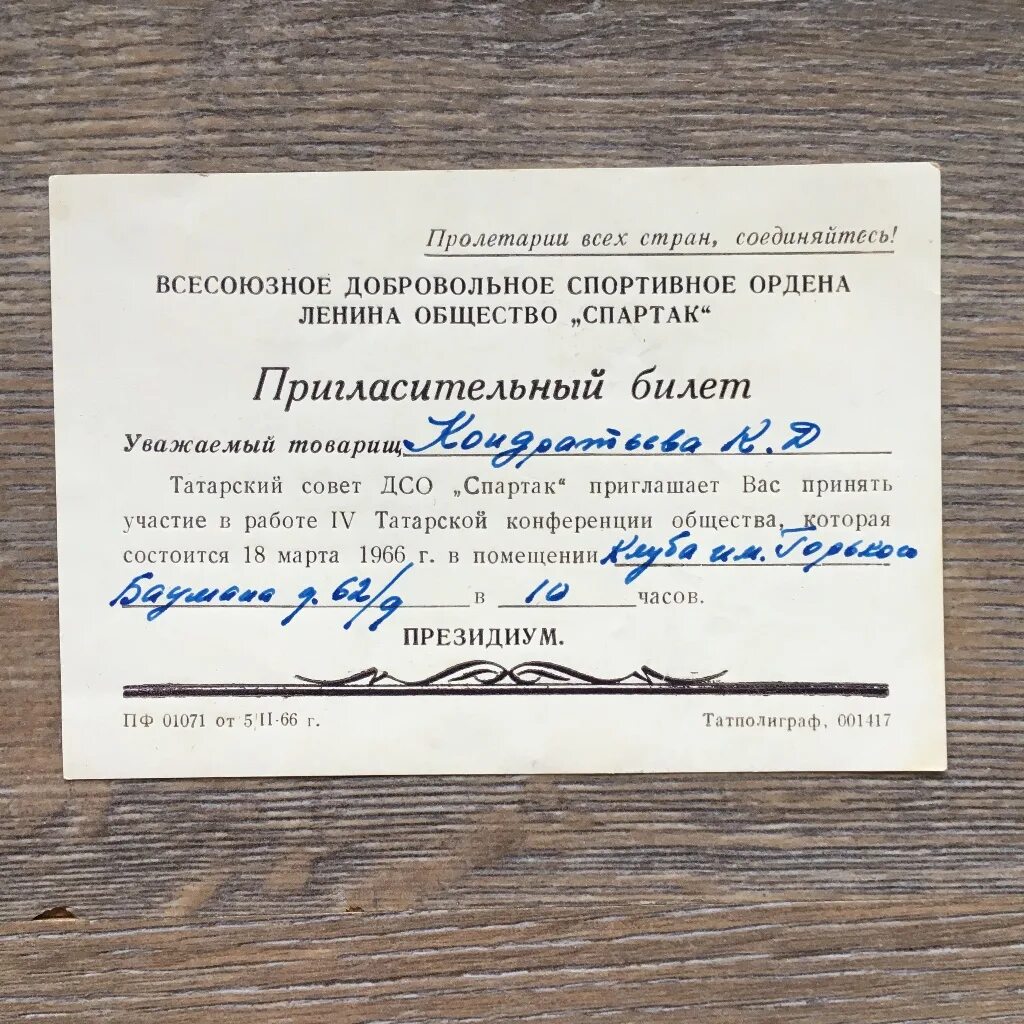 Пролетарии всех стран, соединяйтесь!
ВСЕСОЮЗНОЕ ДОБРОВОЛЬНОЕ СПОРТИВНОЕ ОРДЕНА
ЛЕНИНА ОБЩЕСТВО „СПАРТАК“
Пригласительный билет
Уважаемый товарищ Кондратьева К. Д
Татарский совет ДСО „Спартак“ приглашает Вас принять
участие в работе IV Татарской конференции общества, которая
состоится 18 марта 1966 г. в помещении Клуба им. Горького
Баумана д. 62/9 в 10 часов.
ПРЕЗИДИУМ.
ПФ 01071 от 5/II-66 г. Татполиграф, 001417